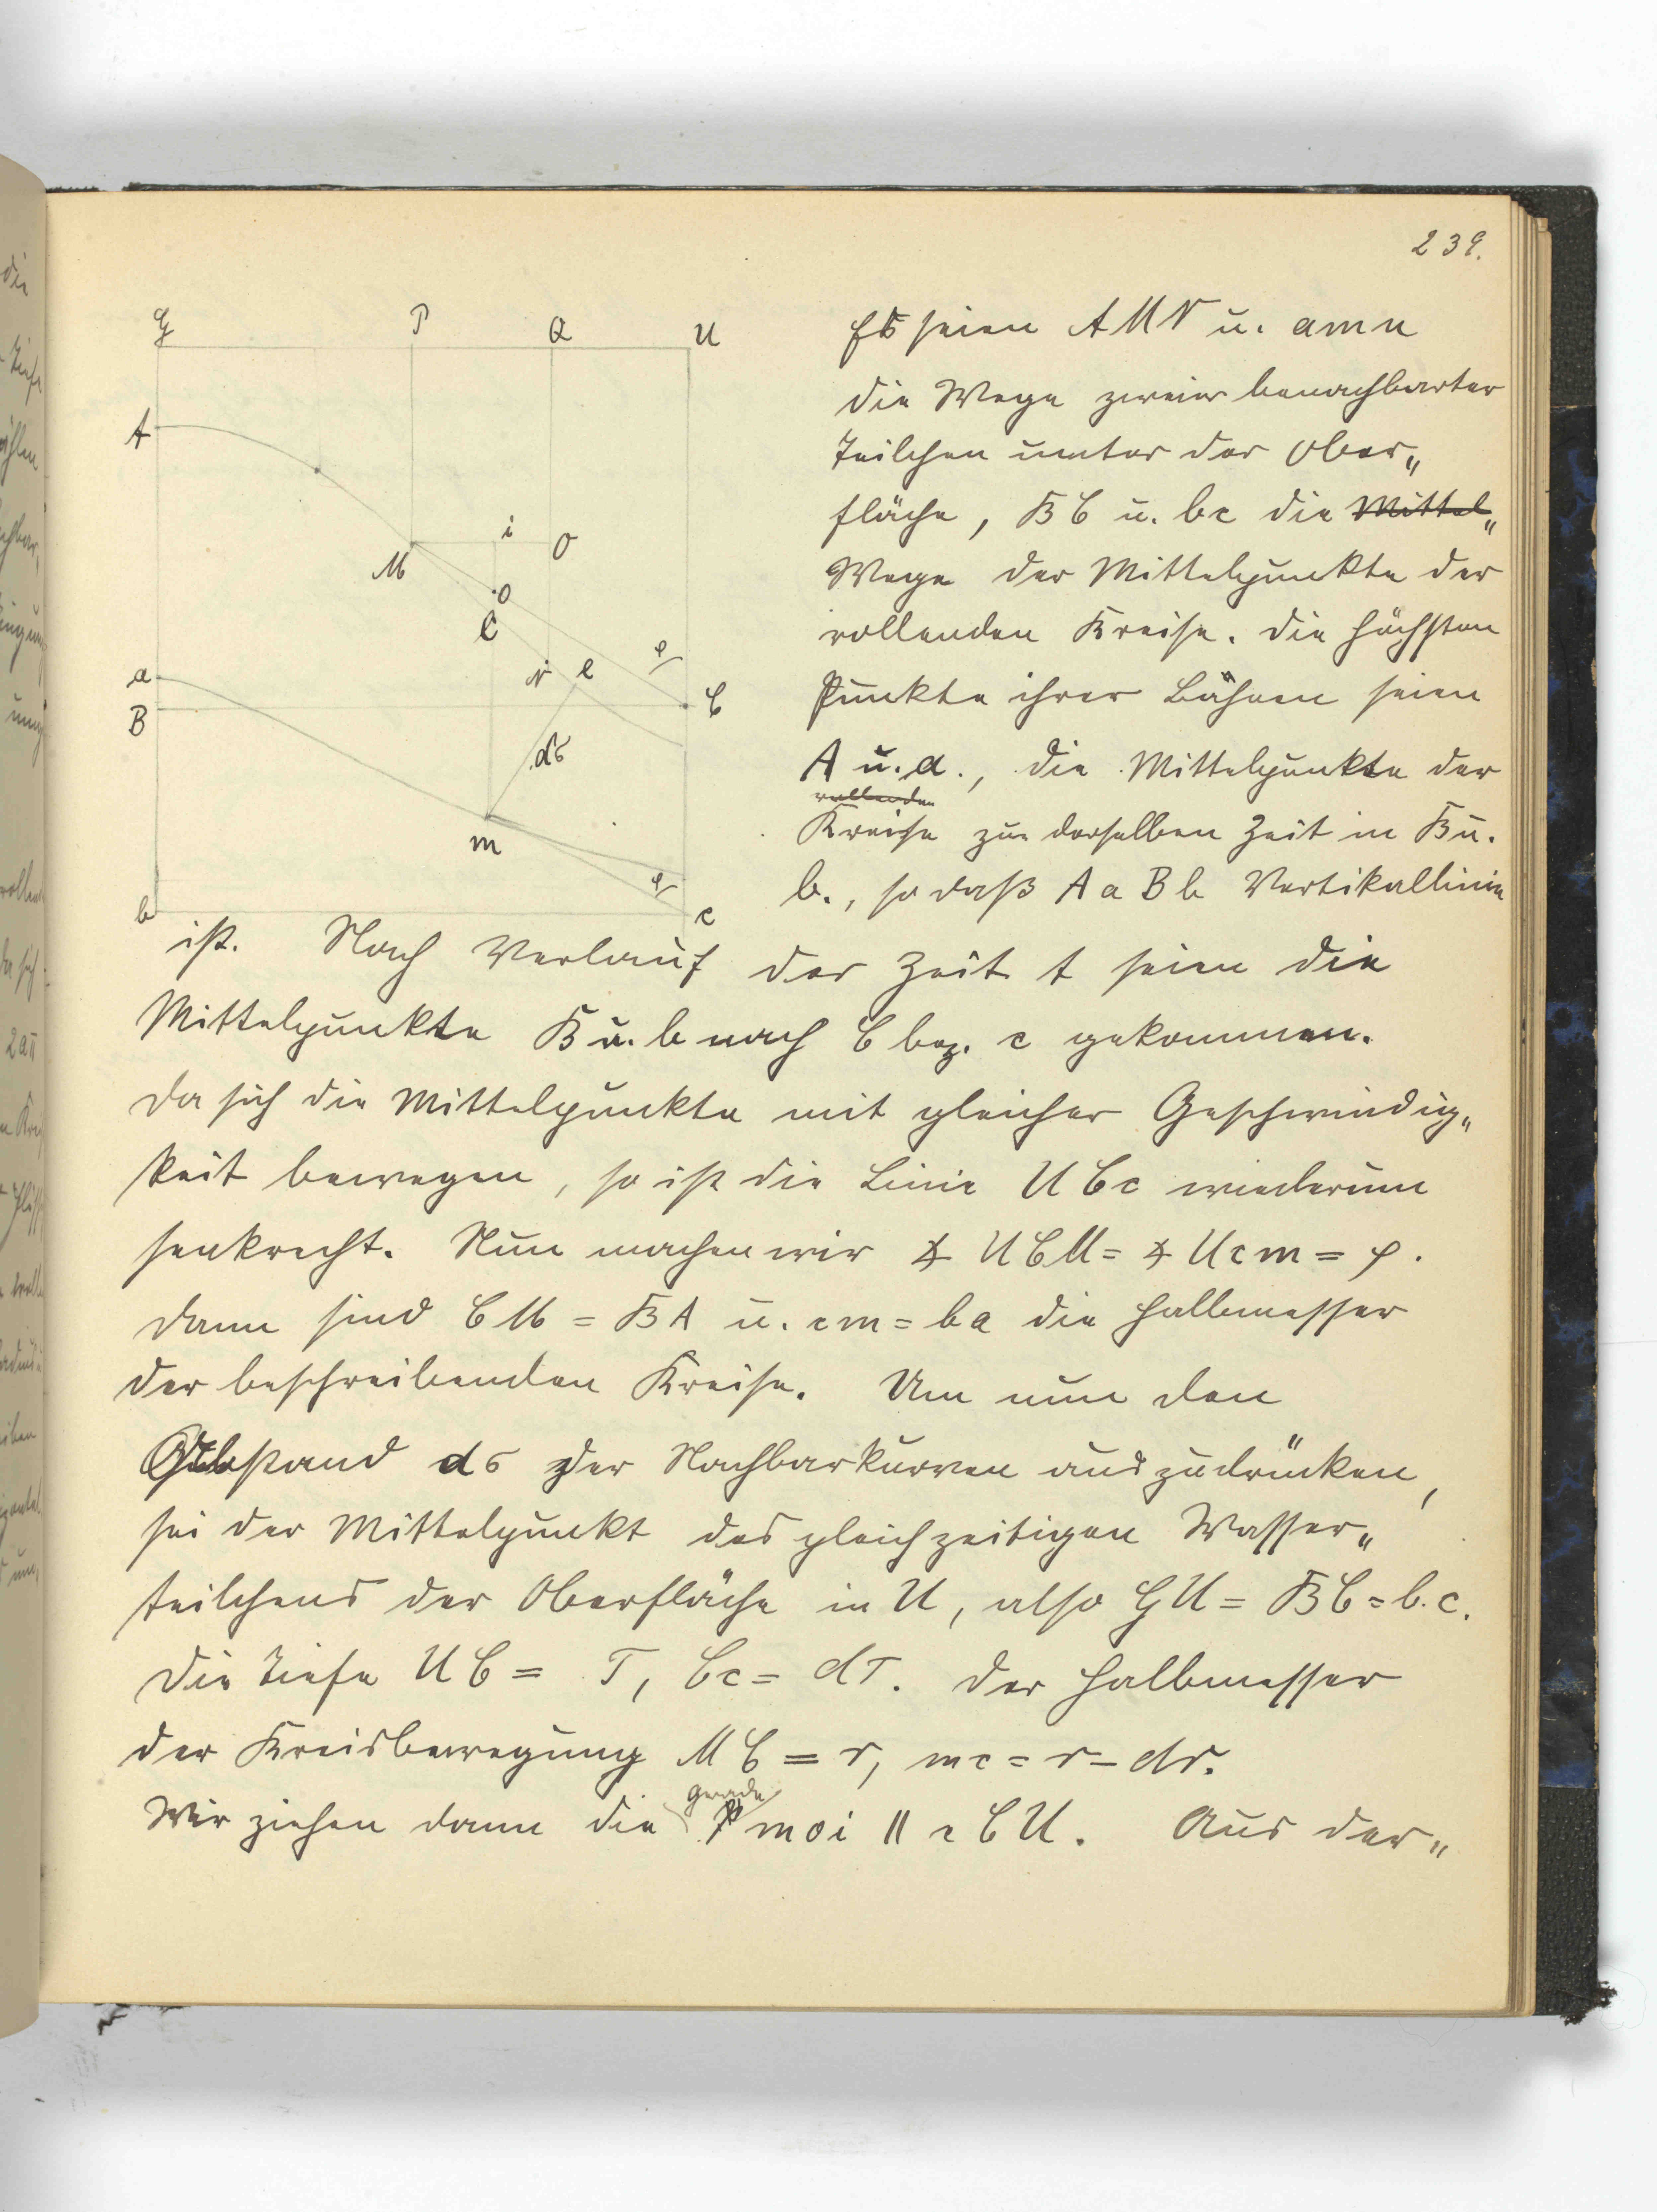 239.
G P Q U
A
M i O
o
C
N e φ
a
B C
dσ
m
φ
b c
Es seien A M N u. a m n
die Wege zweier benachbarter
Teilchen unter der Ober„
fläche, B C u. b c die Mittel„
Wege der Mittelpunkte der
rollenden Kreise. Die höchsten
Punkte ihrer Bahnen seien
A u. a., die Mittelpunkte der
rollenden
Kreise zu derselben Zeit in B u.
b., so daß A a B b Vertikallinie
ist. Nach Verlauf der Zeit t seien die
Mittelpunkte B u. b nach C bez. c gekommen.
Da sich die Mittelpunkte mit gleicher Geschwindig„
keit bewegen, so ist die Linie U C c wiederum
senkrecht. Nun machen wir ∡ U C M = ∡ U c m = φ.
Dann sind C M = B A u. c m = b a die Halbmesser
der beschreibenden Kreise. Um nun den
Abstand dσ der Nachbarkurven auszudrücken,
sei der Mittelpunkt des gleichzeitigen Wasser„
teilchens der Oberfläche in U, also G U = B C = b. c.
Die Tiefe U C = T, C c = dT. Der Halbmesser
der Kreisbewegung M C = r, m c = r - dr.
gerade
Wir ziehen dann die m o i || c C U. Aus der„